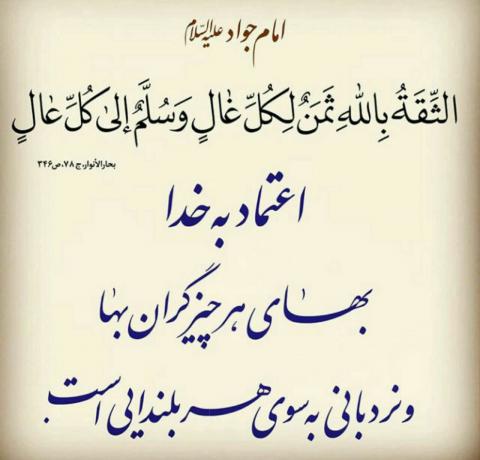 امام جواد علیه السلام
الثِّقَةُ بِاللهِ ثَمَنٌ لِكُلِّ غٰالٍ وَسُلَّمٌ إلىٰ كُلِّ عٰالٍ
بحارالأنوار، ج ۷۸، ص ۳۴۶
اعتماد به خدا
بهای هر چیز گران بها
و نردبانی به سوی هر بلندایی است